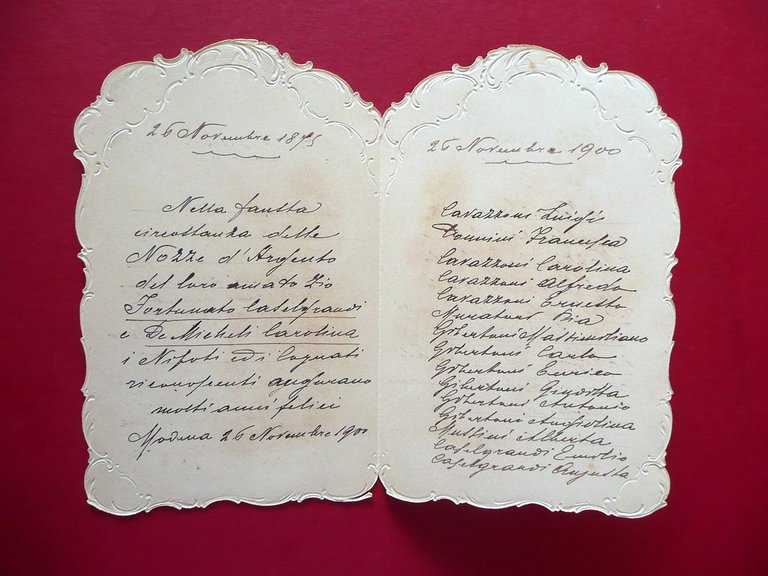 26 Novembre 1875
Nella fausta
circostanza delle
Nozze d'Argento
del loro amato Zio
Fortunato Caselgrandi
e De Micheli Carolina
i Nipoti ed i Cognati
riconoscenti augurano
molti anni felici
Modena 26 Novembre 1900
26 Novembre 1900
Cavazzoni Luigi
Francesca
Cavazzoni Carolina
Cavazzoni Alfredo
Cavazzoni Ernesto
Muratori Pia
Gibertoni Massimiliano
Gibertoni Carlo
Gibertoni Enrico
Gibertoni Giuditta
Gibertoni Antonio
Gibertoni
Alberta
Caselgrandi Emilio
Caselgrandi Augusta